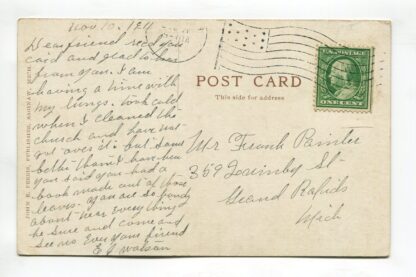 Nov 10. 1911
Dear friend rec'd your
card and glad to hear
from you. I am
having a time with
my lungs. took cold
when I cleaned the
church and have not
got over it. but some
better than I have been
you said you had a
book made out of those
leaves. you are so handy
about here everything
be sure and come and
see us Ever your friend
E J Watson
U.S. POSTAGE
ONE CENT
POST CARD
This side for address
Mr Frank Painter
359 Quimby St-
Grand Rapids
Mich